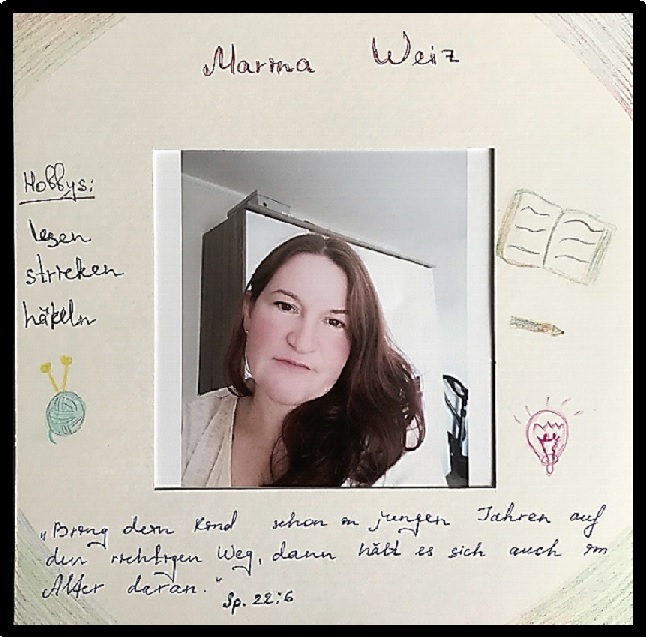 Marina Weiz
Hobbys:
lesen
stricken
häkeln
„Bring dein Kind schon in jungen Jahren auf
den richtigen Weg, dann hält es sich auch im
Alter daran.“
Sp. 22:6